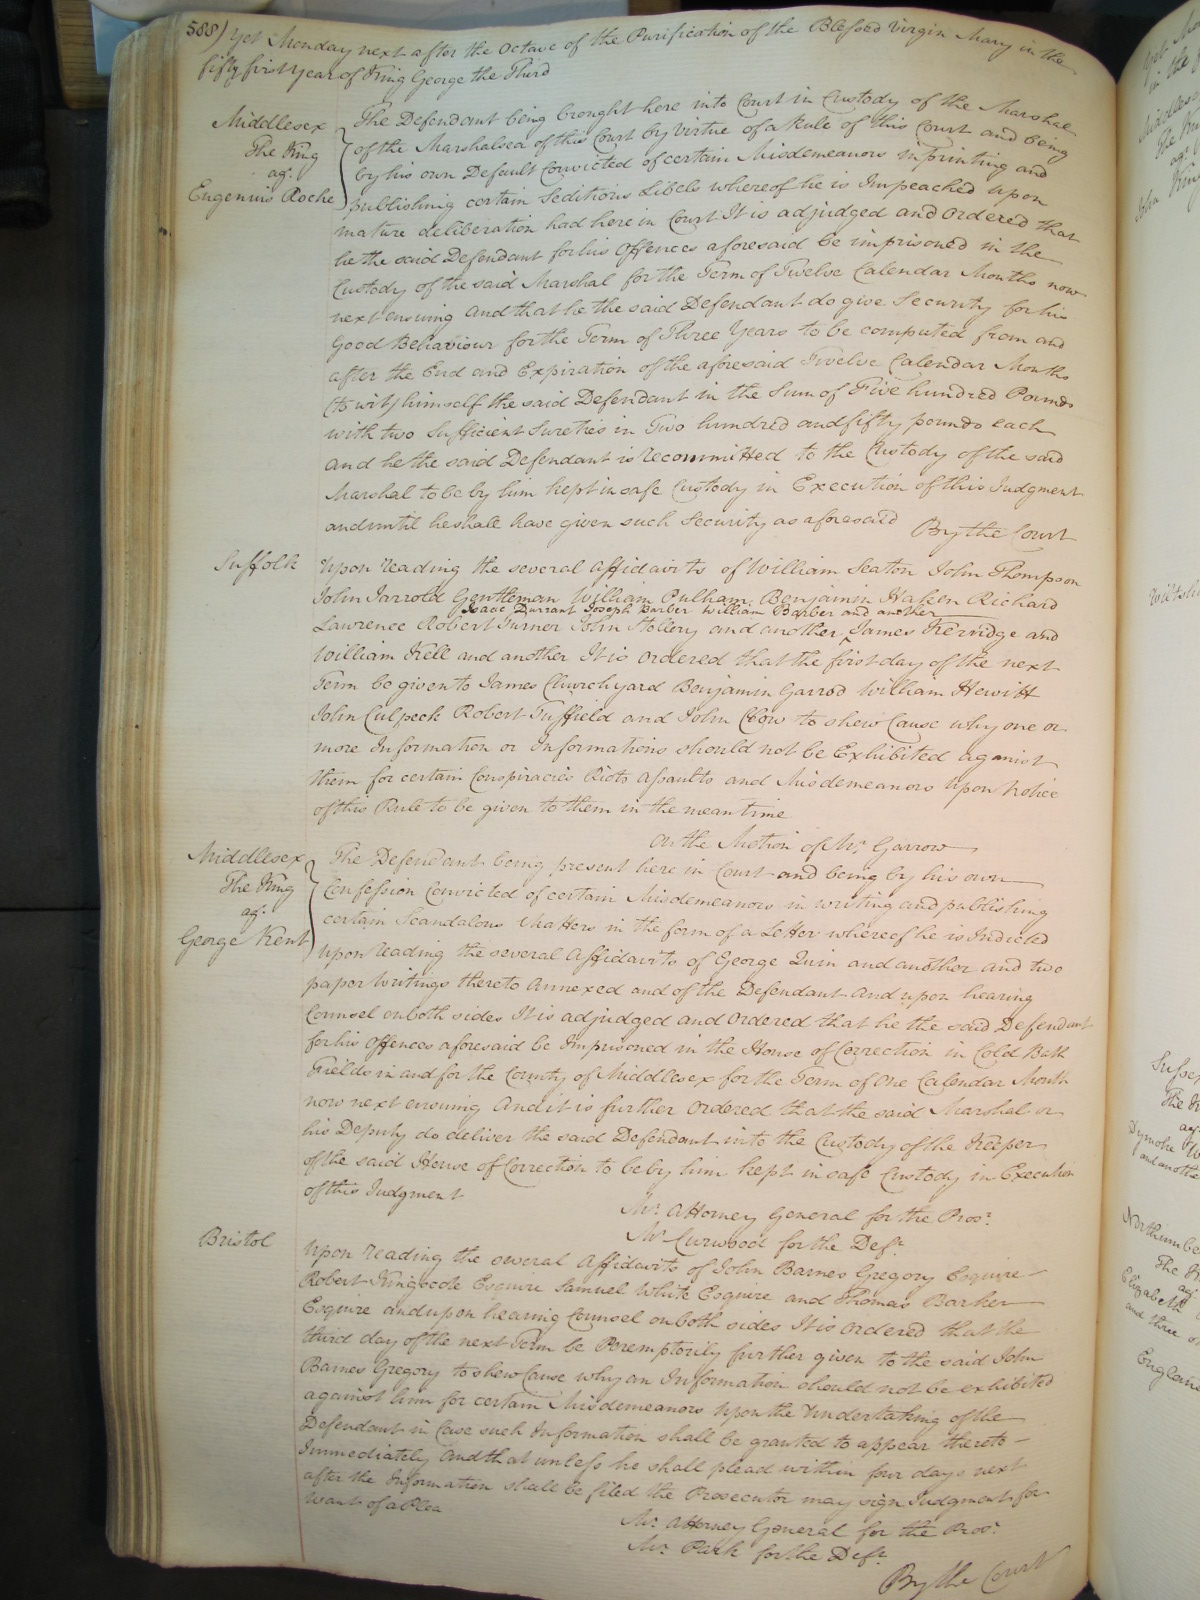 588) Yet Monday next after the Octave of the Purification of the Blessed Virgin Mary in the
fifty first year of King George the Third
Middlesex
The King
agt.
Eugenius Roche
The Defendant being brought here into Court in Custody of the Marshal
of the Marshalsea of this Court by virtue of a Rule of this Court and being
by his own Default Convicted of certain Misdemeanors in printing and
publishing certain Seditious Libels whereof he is Impeached Upon
mature deliberation had here in Court It is adjudged and Ordered that
he the said Defendant for his Offences aforesaid be imprisoned in the
Custody of the said Marshal for the Term of Twelve Calendar Months now
next ensuing And that he the said Defendant do give Security for his
Good Behaviour for the Term of Three Years to be computed from and
after the End and Expiration of the aforesaid Twelve Calendar Months
(to wit) himself the said Defendant in the Sum of Five hundred Pounds
with two Sufficient Sureties in Two hundred and fifty pounds each
And he the said Defendant is recommitted to the Custody of the said
Marshal to be by him kept in safe Custody in Execution of this Judgment
and until he shall have given such Security as aforesaid By the Court
Suffolk
Upon reading the several Affidavits of William Seaton John Thompson
John Jarrold Gentleman William Pulham Benjamin Haken Richard
Isaac Durrant Joseph Barber William Barber and another
Lawrence Robert Turner John Stollery and another James Kerridge and
William Kell and another It is Ordered that the first day of the next
Term be given to James Churchyard Benjamin Garrod William Hewitt
John Culpeck Robert Tuffield and John Clow to shew Cause why one or
more Information or Informations should not be Exhibited against
them for certain Conspiracies Riots Assaults and Misdemeanors Upon Notice
of this Rule to be given to them in the mean time
On the Motion of Mr. Garrow
Middlesex
The King
agt.
George Kent
The Defendant being present here in Court and being by his own
Confession Convicted of certain Misdemeanors in writing and publishing
certain Scandalous Matters in the form of a Letter whereof he is Indicted
Upon reading the several Affidavits of George Quin and another and two
paper Writings thereto Annexed and of the Defendant And upon hearing
Counsel on both sides It is adjudged and Ordered that he the said Defendant
for his Offences aforesaid be Imprisoned in the House of Correction in Cold Bath
Fields in and for the County of Middlesex for the Term of One Calendar Month
now next ensuing And it is further Ordered that the said Marshal or
his Deputy do deliver the said Defendant into the Custody of the Keeper
of the said House of Correction to be by him kept in safe Custody in Execution
of this Judgment
Mr. Attorney General for the Prosr.
Mr. Curwood for the Deft.
Bristol
Upon reading the several Affidavits of John Barnes Gregory Esquire
Robert Kingscote Esquire Samuel White Esquire and Thomas Barker
Esquire and upon hearing Counsel on both sides It is Ordered that the
third day of the next Term be Peremptorily further given to the said John
Barnes Gregory to shew Cause why an Information should not be exhibited
against him for certain Misdemeanors Upon the Undertaking of the
Defendant in Case such Information shall be granted to appear thereto
Immediately And that unless he shall plead within four days next
after the Information shall be filed the Prosecutor may sign Judgment for
want of a Plea
Mr. Attorney General for the Prosr.
Mr. Park for the Deft.
By the Court